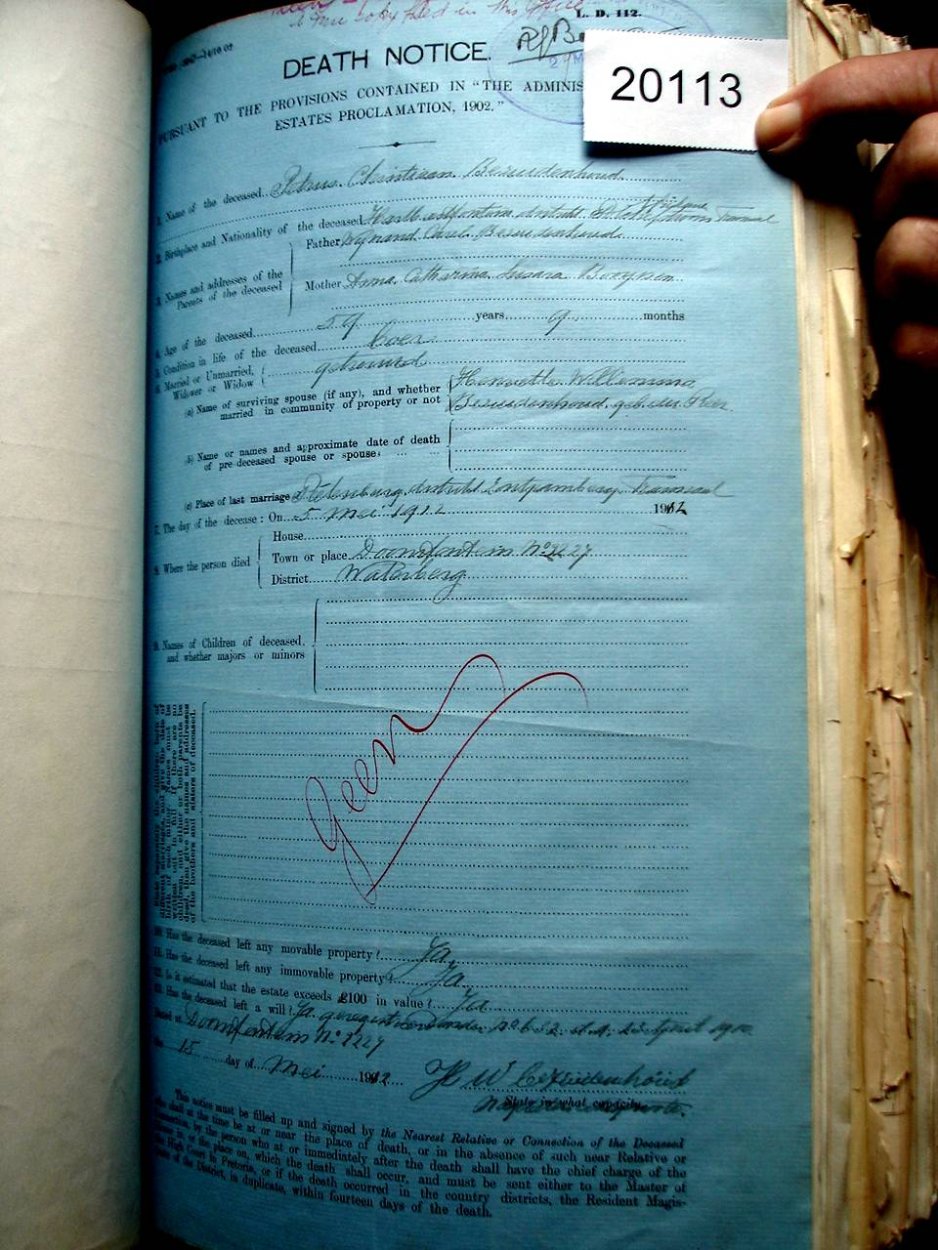 a true copy filed in this office
L. D. 112.
DEATH NOTICE.
20113
PURSUANT TO THE PROVISIONS CONTAINED IN "THE ADMINIS
ESTATES PROCLAMATION, 1902."
1. Name of the deceased Petrus Christiaan Bezuidenhoud
2. Birthplace and Nationality of the deceased district Transvaal
3. Names and addresses of the Parents of the deceased
Father Wynand Carel Bezuidenhoud
Mother Anna Catharina Susara
4. Age of the deceased 59 years 9 months
5. Condition in life of the deceased boer
6. Married or Unmarried, Widower or Widow getrouwd
(a) Name of surviving spouse (if any), and whether married in community of property or not
Henrietta Willemina
Bezuidenhoud geb.
(b) Name or names and approximate date of death of pre-deceased spouse or spouses
(c) Place of last marriage district Transvaal
7. The day of the decease: On 5 Mei 1912 1912
8. Where the person died
House
Town or place Doornfontein No 2227
District Waterberg
9. Names of Children of deceased, and whether majors or minors
Geen
10. Has the deceased left any movable property? Ja
11. Has the deceased left any immovable property? Ja
12. Is it estimated that the estate exceeds £100 in value? Ja
13. Has the deceased left a will? Ja, 1910
Dated at Doornfontein No 2227
the 15 day of Mei 1912
H W Bezuidenhoud
State in what capacity.
This notice must be filled up and signed by the Nearest Relative or Connection of the Deceased
who shall at the time be at or near the place of death, or in the absence of such near Relative or
Connection, by the person who at or immediately after the death shall have the chief charge of the
house in, or the place on, which the death shall occur, and must be sent either to the Master of
the High Court in Pretoria, or if the death occurred in the country districts, the Resident Magis-
trate of the District, in duplicate, within fourteen days of the death.